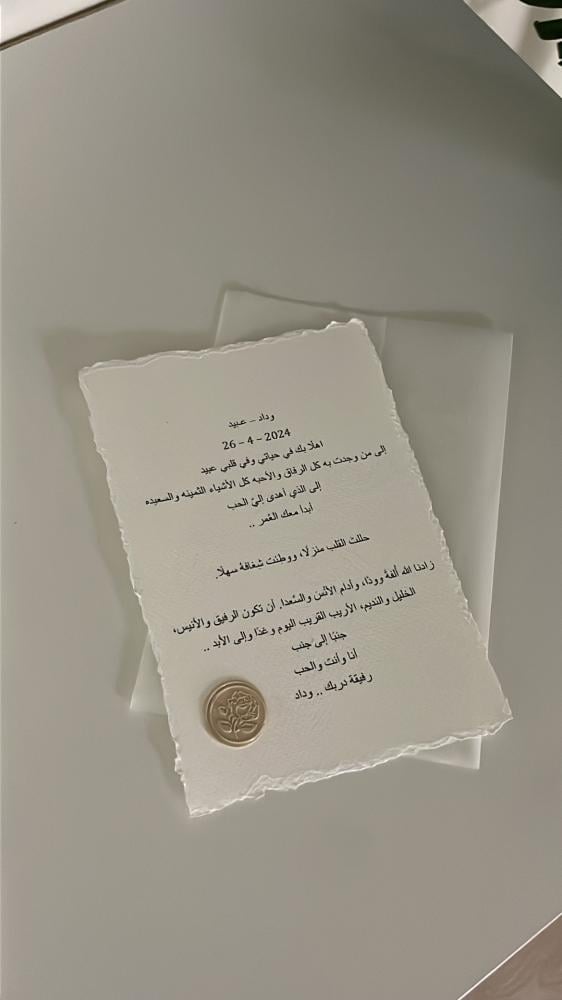 وداد – عبيد
26 – 4 – 2024
اهلًا بك في حياتي وفي قلبي عبيد
إلى من وجدت به كل الرفاق والأحبه كل الأشياء الثمينه والسعيده
إلى الذي أهدى إليّ الحب
أبدأ معك العُمر ..
حللت القلب منزلًا، ووطنت شغافهُ سهلًا.
زادنا الله ألفةً وودًا، وأدام الأنس والسُعدا. أن تكون الرفيق والأنيس،
الخليل والنديم، الأريب القريب اليوم وغدًا وإلى الأبد ..
جنبًا إلى جنب
أنا وأنت والحب
رفيقة دربك .. وداد